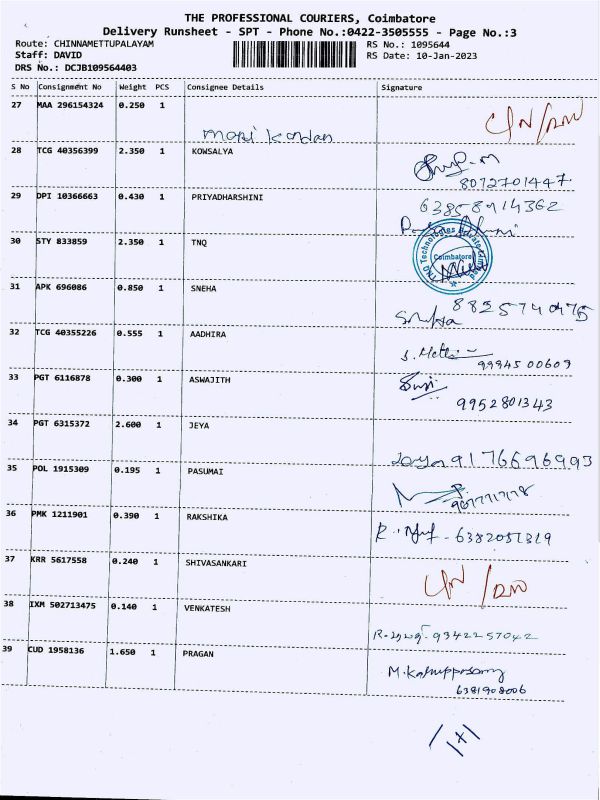 THE PROFESSIONAL COURIERS, Coimbatore
Delivery Runsheet - SPT - Phone No.:0422-3505555 - Page No.:3
Route: CHINNAMETTUPALAYAM RS No.: 1095644
Staff: DAVID RS Date: 10-Jan-2023
DRS No.: DCJB109564403
S No Consignment No Weight PCS Consignee Details Signature
27 MAA 296154324 0.250 1
28 TCG 40356399 2.350 1 KOWSALYA
8072701447
29 DPI 10366663 0.430 1 PRIYADHARSHINI 63858914362
30 STY 833859 2.350 1 TNQ
Coimbatore
31 APK 696086 0.850 1 SNEHA
Sneha 8825740475
32 TCG 40355226 0.555 1 AADHIRA
9994500609
33 PGT 6116878 0.300 1 ASWAJITH
9952801343
34 PGT 6315372 2.600 1 JEYA
Jaya 9176696993
35 POL 1915309 0.195 1 PASUMAI
36 PMK 1211901 0.390 1 RAKSHIKA
6382051319
37 KRR 5617558 0.240 1 SHIVASANKARI
38 IXM 502713475 0.140 1 VENKATESH
9342257042
39 CUD 1958136 1.650 1 PRAGAN
M.Karuppasamy
6381908006